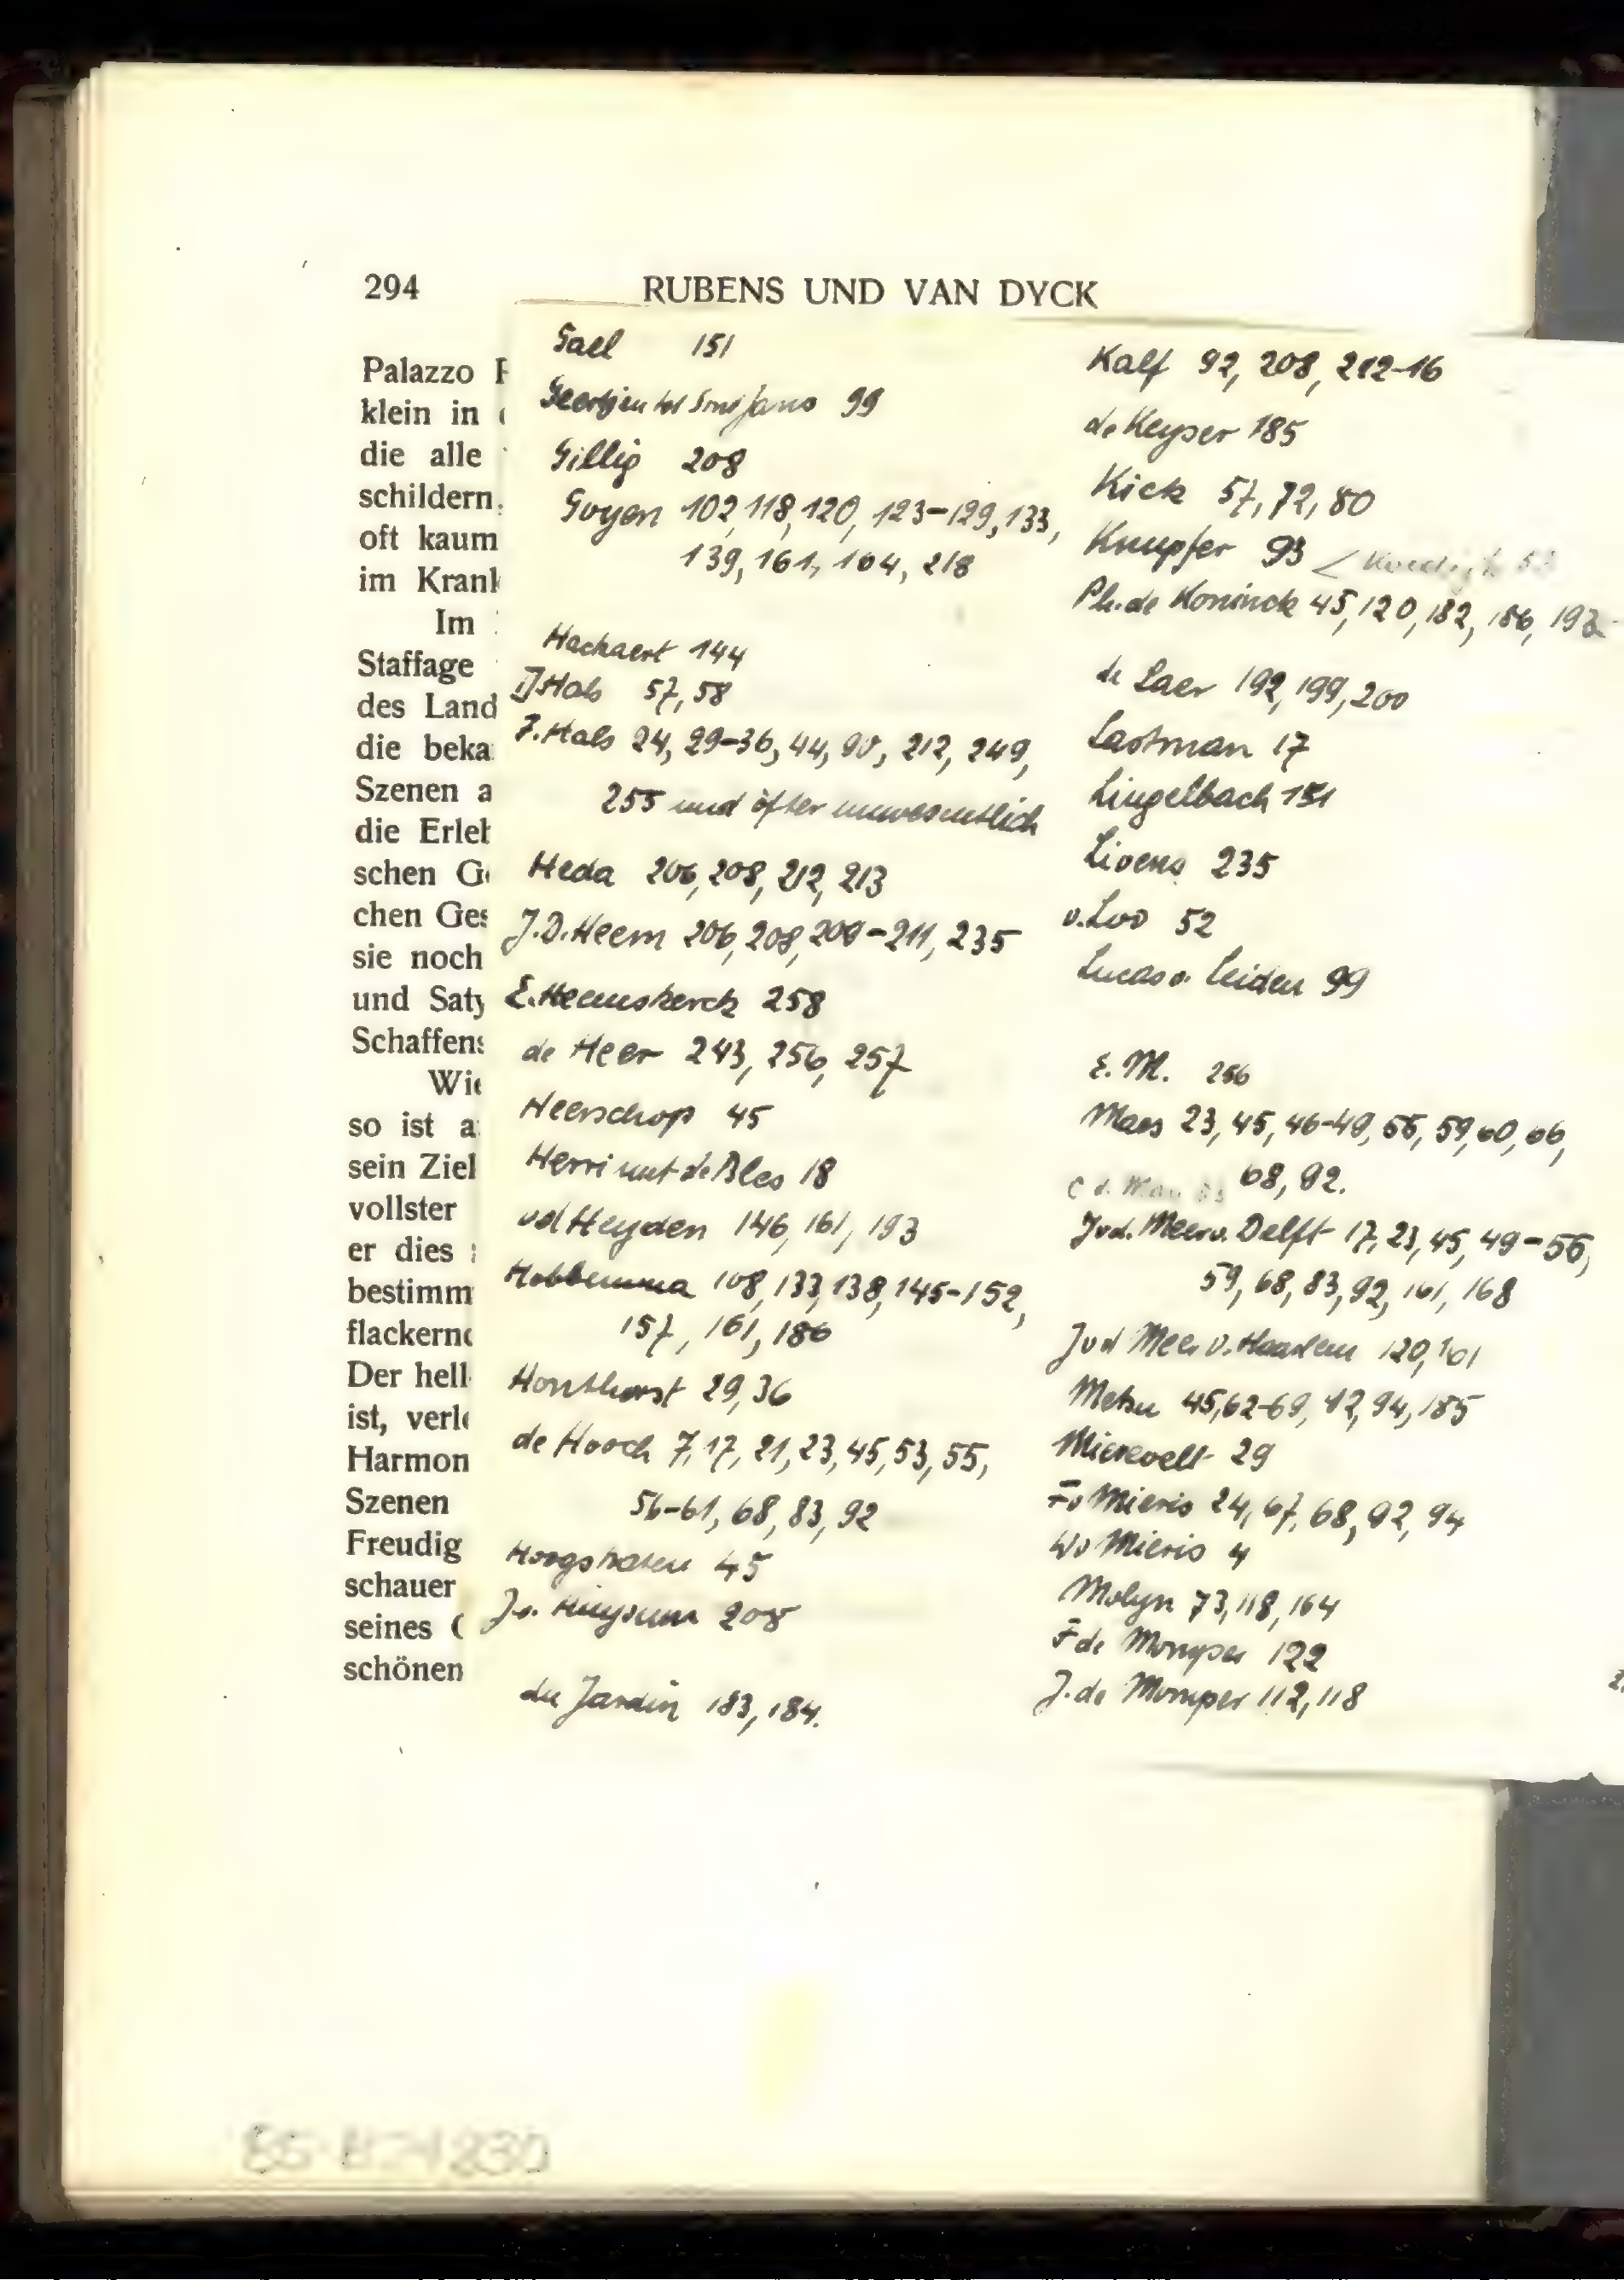 294 RUBENS UND VAN DYCK
Palazzo
klein in
die alle
schildern.
oft kaum
im Kran
Im
Staffage
des Land
die beka
Szenen a
die Erle
schen G
chen Ges
sie noch
und Saty
Schaffens
Wie
so ist a
sein Ziel
vollster
er dies
bestimm
flackern
Der hell
ist, verl
Harmon
Szenen
Freudig
schauer
seines
schönen
Gael 151
99
Gillig 208
Goyen 102, 118, 120, 123-129, 133,
139, 161, 164, 218
Hackaert 144
D Hals 57, 58
F. Hals 24, 29-36, 44, 90, 212, 249,
255 und öfter unwesentlich
Heda 206, 208, 212, 213
J.D. Heem 206, 208, 209-211, 235
E. Heemskerck 258
de Heer 243, 256, 257
Heerschop 45
Herri met de Bles 18
vd Heyden 146, 161, 193
Hobbema 108, 133, 138, 145-152,
157, 161, 186
Honthorst 29, 36
de Hooch 7, 17, 21, 23, 45, 53, 55,
56-61, 68, 83, 92
Hoogstraten 45
J.v. Huysum 208
du Jardin 183, 184.
Kalf 92, 208, 212-16
de Keyser 185
Kick 57, 72, 80
Knupfer 93
Ph. de Koninck 45, 120, 182, 186, 192
de Laer 192, 199, 200
Lastman 17
Lingelbach 151
Livens 235
v. Loo 52
Lucas v. Leiden 99
E. M. 256
Maes 23, 45, 46-49, 55, 59, 60, 66,
68, 92.
J v d. Meer v. Delft 17, 23, 45, 49-56,
59, 68, 83, 92, 161, 168
J v d Meer v. Haarlem 120, 161
Metsu 45, 62-69, 92, 94, 185
Mierevelt 29
F v Mieris 24, 67, 68, 92, 94
W v Mieris 4
Molyn 73, 118, 164
F de Momper 122
J. de Momper 112, 118